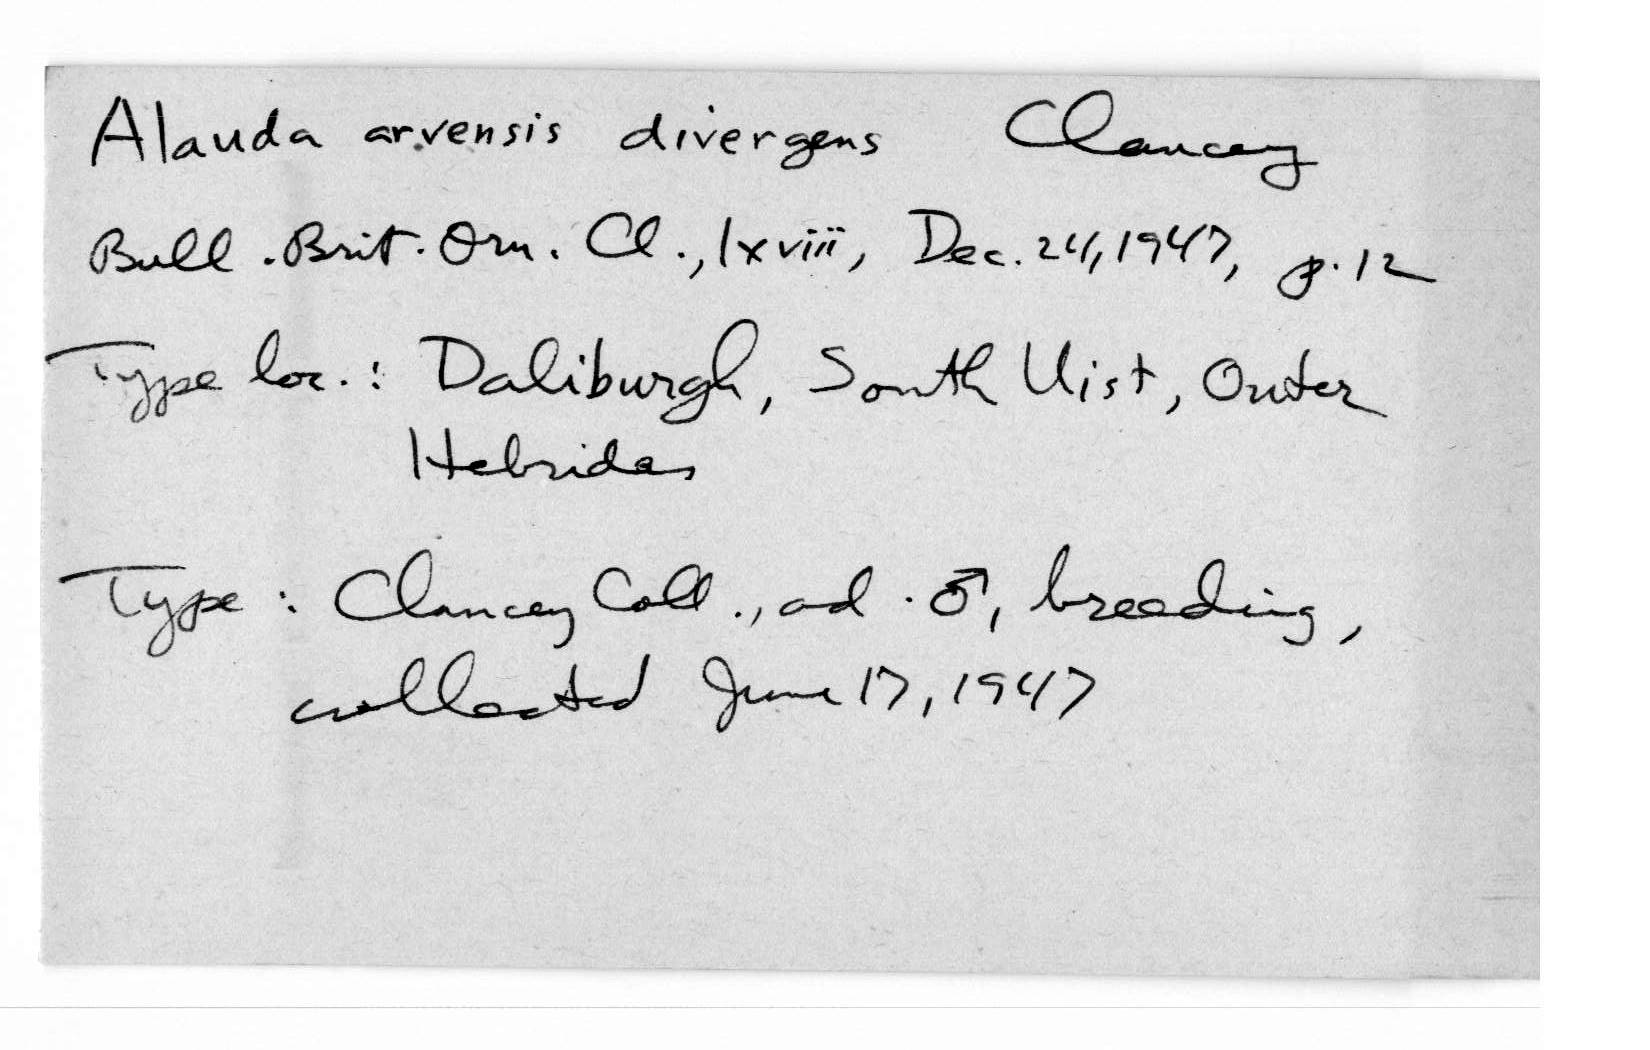 Alauda arvensis divergens Clancey
Bull. Brit. Orn. Cl., lxviii, Dec. 24, 1947, p. 12
Type loc.: Daliburgh, South Uist, Outer
Hebrides
Type: Clancey Coll., ad. ♂, breeding,
collected June 17, 1947